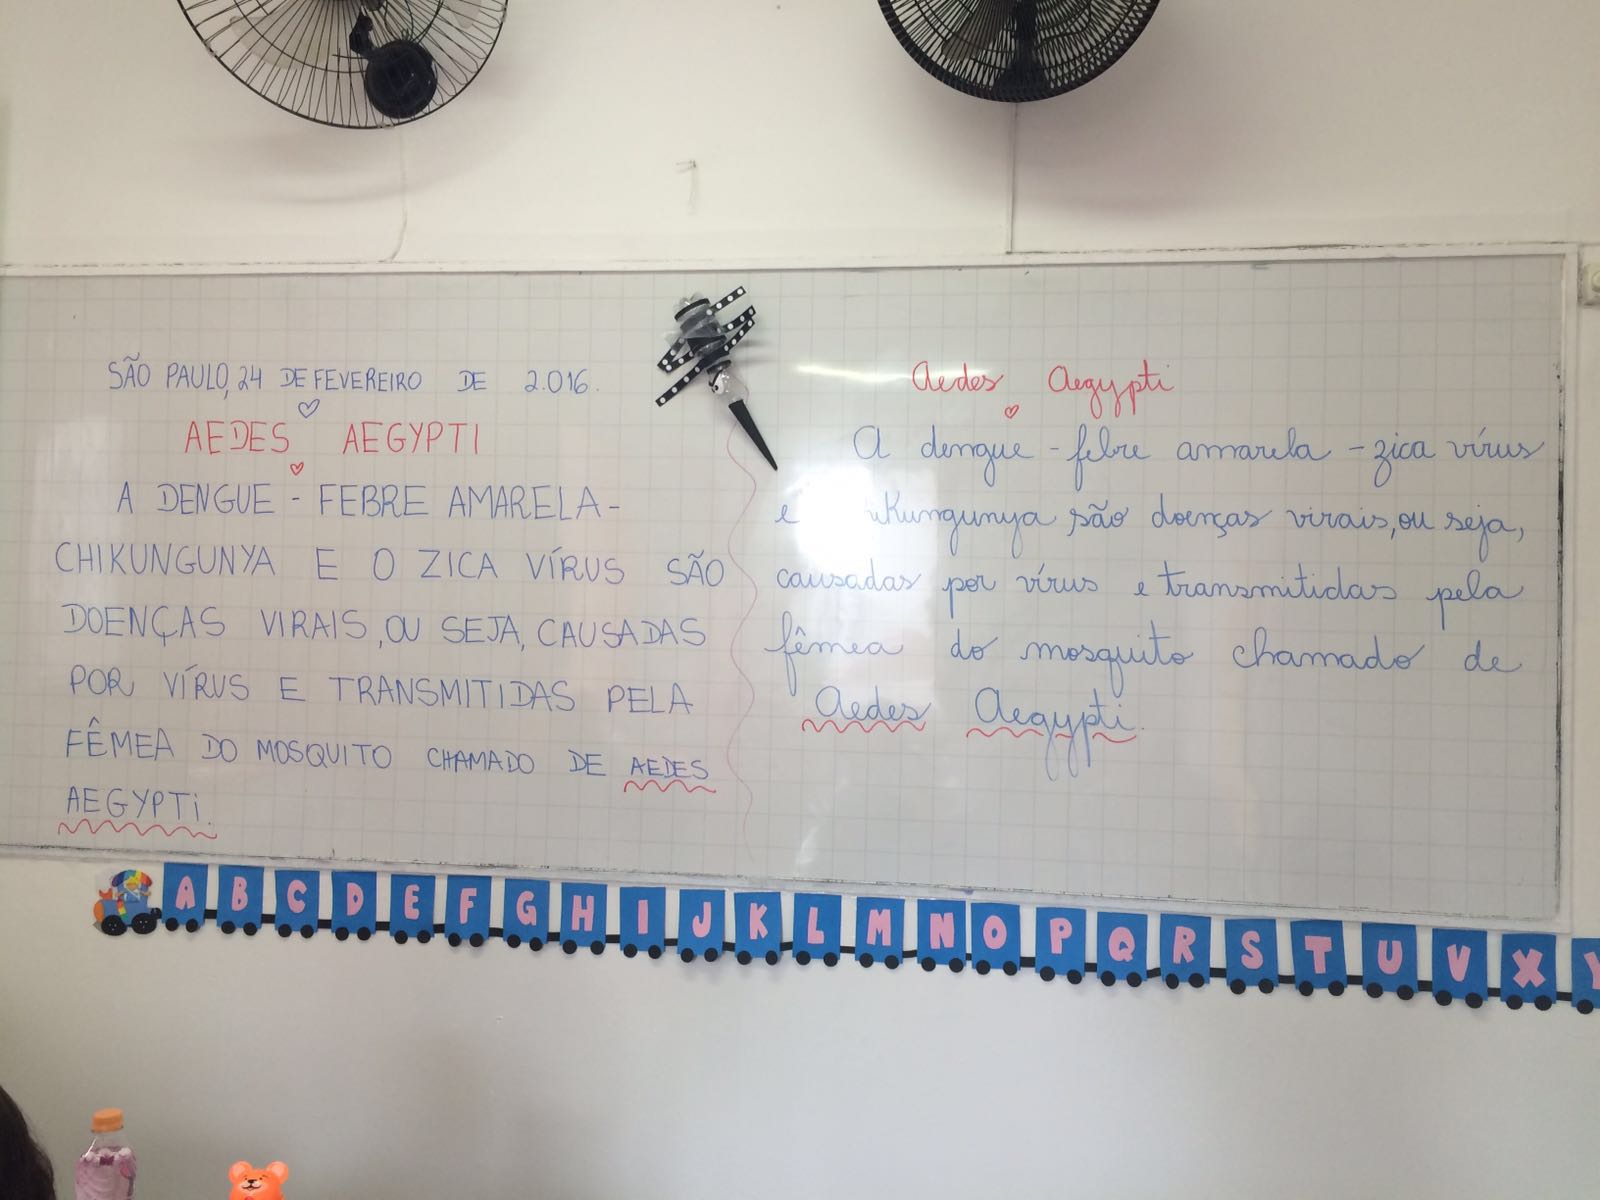 SÃO PAULO, 24 DE FEVEREIRO DE 2.016.
AEDES AEGYPTI
A DENGUE - FEBRE AMARELA -
CHIKUNGUNYA E O ZICA VÍRUS SÃO
DOENÇAS VIRAIS, OU SEJA, CAUSADAS
POR VÍRUS E TRANSMITIDAS PELA
FÊMEA DO MOSQUITO CHAMADO DE AEDES
AEGYPTI.
Aedes Aegypti
A dengue - febre amarela - zica vírus
e hikungunya são doenças virais, ou seja,
causadas por vírus e transmitidas pela
fêmea do mosquito chamado de
Aedes Aegypti.
A B C D E F G H I J K L M N O P Q R S T U V X Y